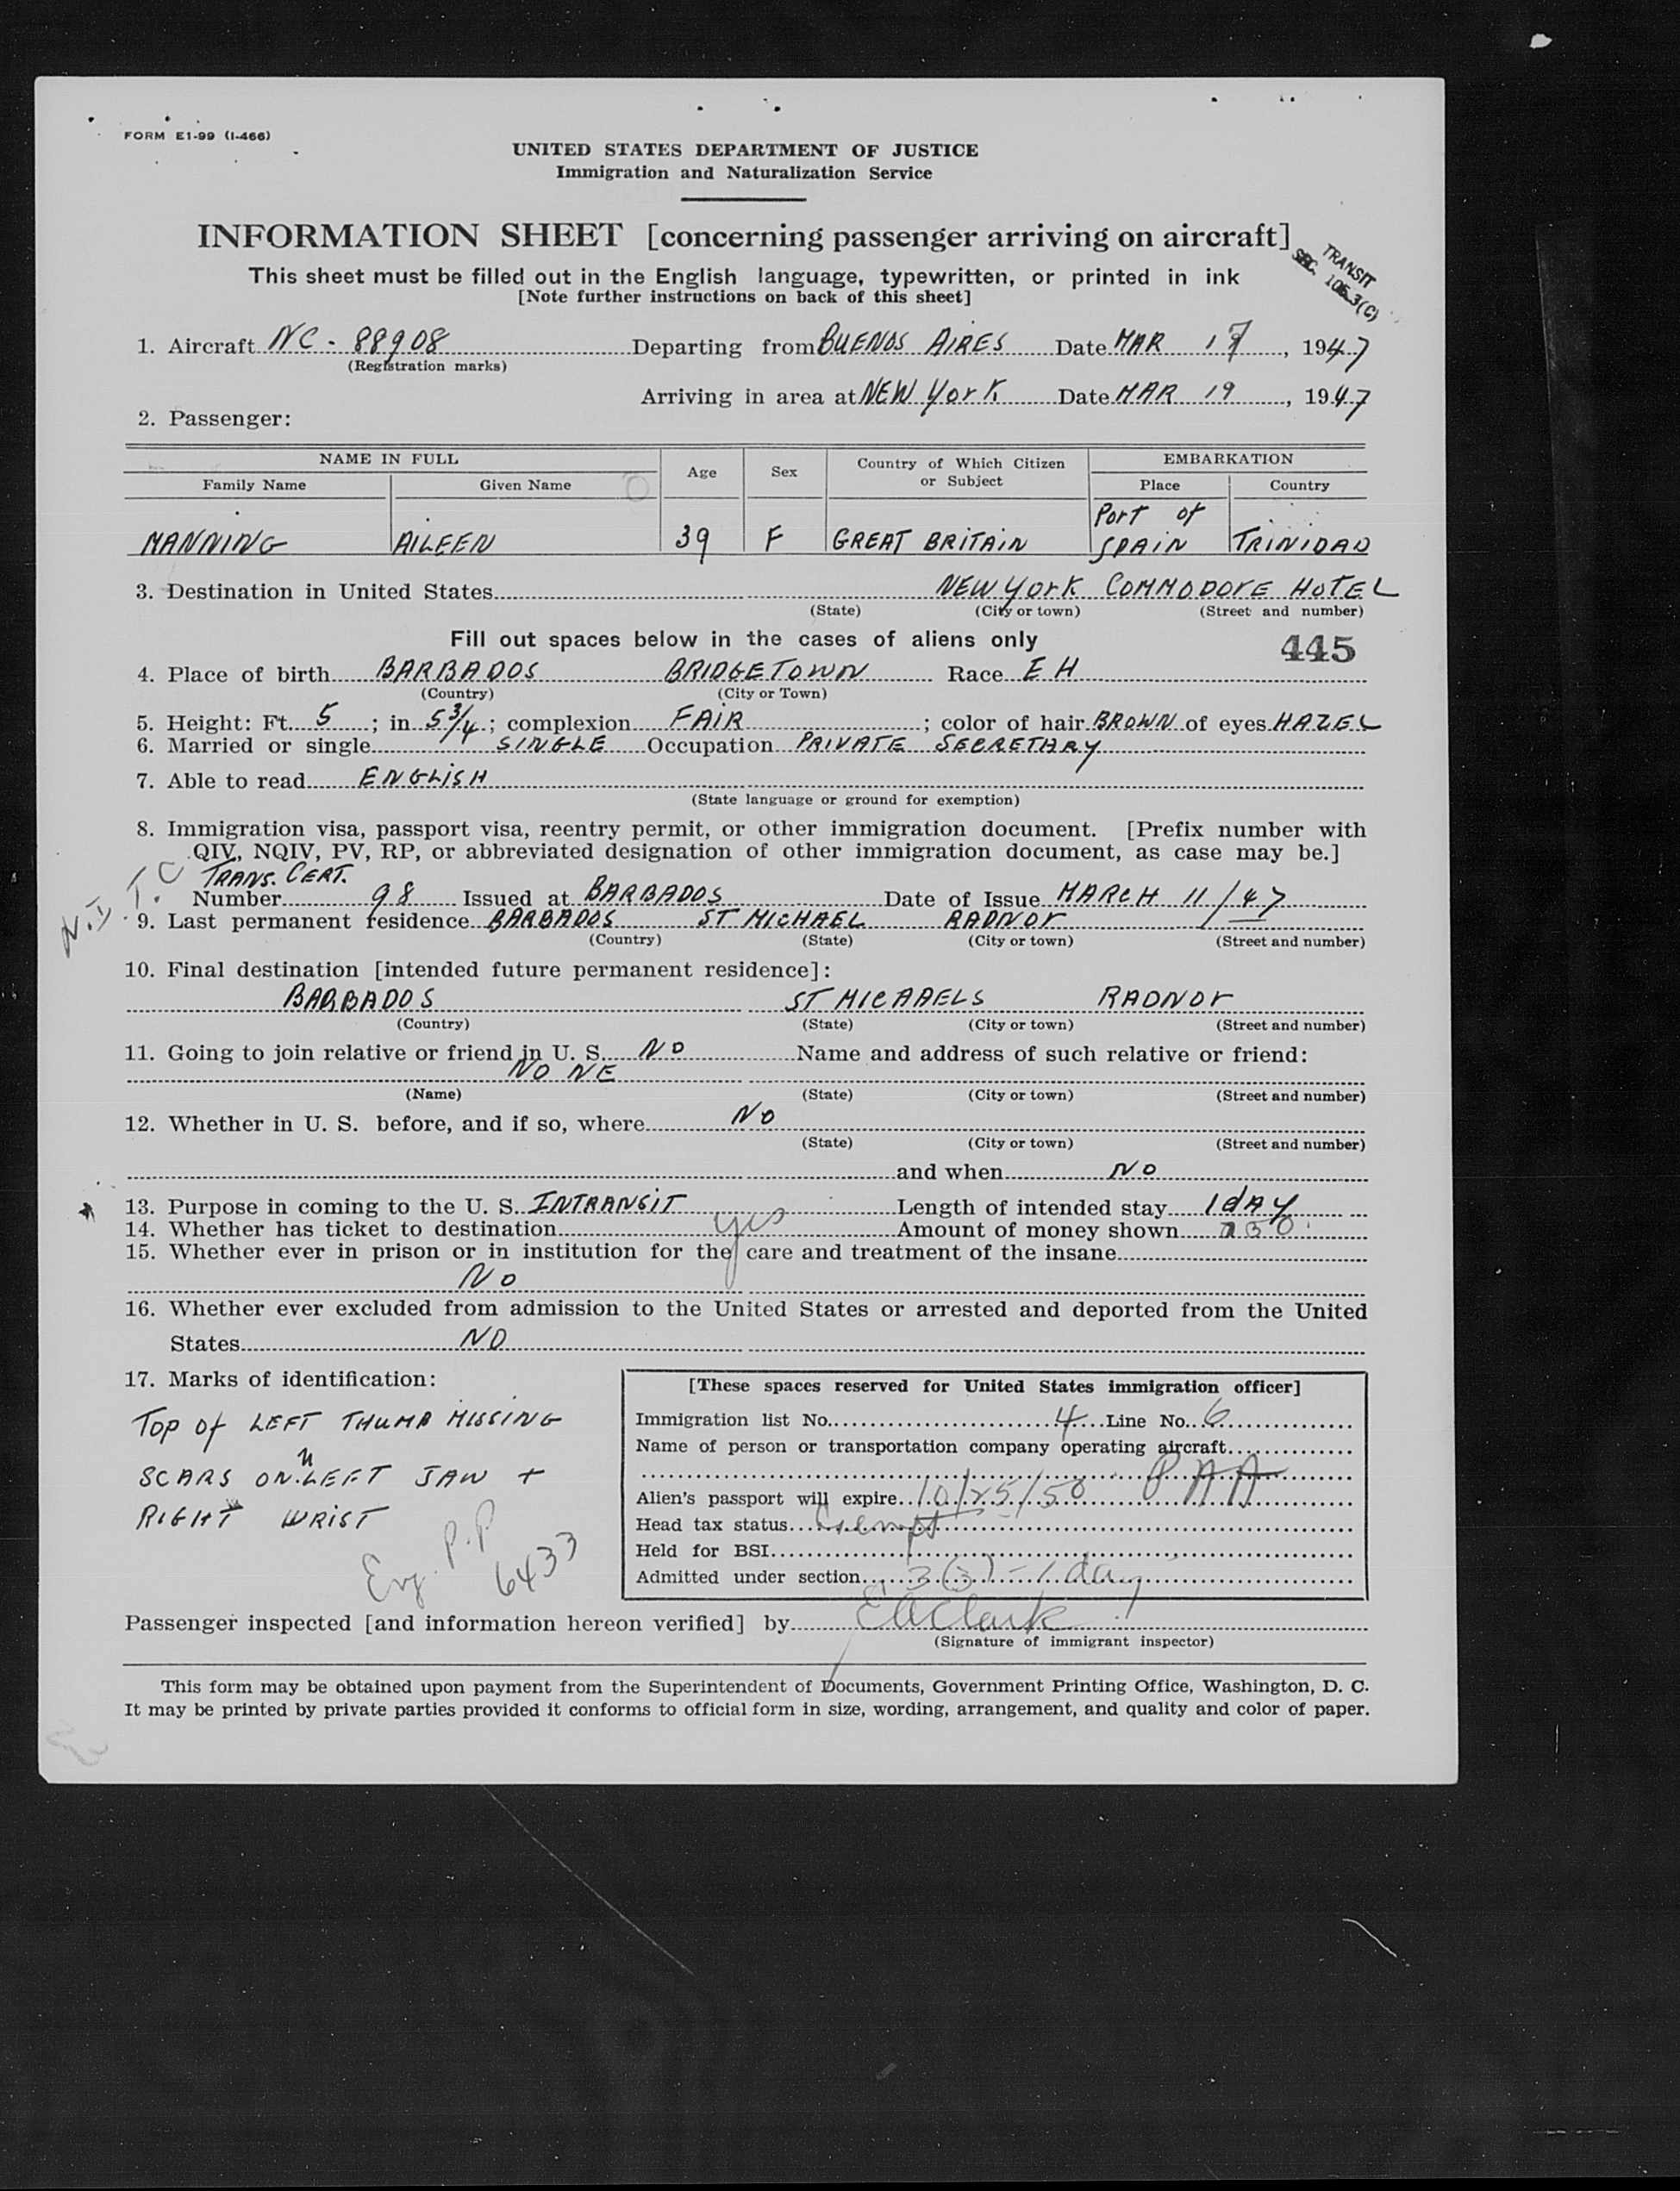 FORM E1-99 (I-466)
UNITED STATES DEPARTMENT OF JUSTICE
Immigration and Naturalization Service
INFORMATION SHEET [concerning passenger arriving on aircraft]
TRANSIT
SEC. 105.3(C)
This sheet must be filled out in the English language, typewritten, or printed in ink
[Note further instructions on back of this sheet]
1. Aircraft NC - 88908 Departing from BUENOS AIRES Date MAR 17, 1947
(Registration marks)
Arriving in area at NEW York Date MAR 19, 1947
2. Passenger:
NAME IN FULL Age Sex Country of Which Citizen or Subject EMBARKATION
Family Name Given Name Place Country
MANNING AILEEN 39 F GREAT BRITAIN Port of SPAIN TRINIDAD
3. Destination in United States NEW York COMMODORE HOTEL
(State) (City or town) (Street and number)
Fill out spaces below in the cases of aliens only 445
4. Place of birth BARBADOS BRIDGETOWN Race E H
(Country) (City or Town)
5. Height: Ft. 5; in 5 3/4; complexion FAIR; color of hair BROWN of eyes HAZEL
6. Married or single SINGLE Occupation PRIVATE SECRETARY
7. Able to read ENGLISH
(State language or ground for exemption)
8. Immigration visa, passport visa, reentry permit, or other immigration document. [Prefix number with
QIV, NQIV, PV, RP, or abbreviated designation of other immigration document, as case may be.]
N.I. T.C TRANS. CERT.
Number 98 Issued at BARBADOS Date of Issue MARCH 11/47
9. Last permanent residence BARBADOS ST MICHAEL RADNOR
(Country) (State) (City or town) (Street and number)
10. Final destination [intended future permanent residence]:
BARBADOS ST MICAAELS RADNOR
(Country) (State) (City or town) (Street and number)
11. Going to join relative or friend in U. S. NO Name and address of such relative or friend:
NONE
(Name) (State) (City or town) (Street and number)
12. Whether in U. S. before, and if so, where NO
(State) (City or town) (Street and number)
and when NO
13. Purpose in coming to the U. S. INTRANSIT Length of intended stay 1 dAy
14. Whether has ticket to destination yes Amount of money shown
15. Whether ever in prison or in institution for the care and treatment of the insane
NO
16. Whether ever excluded from admission to the United States or arrested and deported from the United
States NO
17. Marks of identification:
TOP of LEFT THUMB MISSING
SCARS ON LEFT JAW +
RIGHT WRIST
Eng. P.P
6433
[These spaces reserved for United States immigration officer]
Immigration list No. 4 Line No. 6
Name of person or transportation company operating aircraft
P A A
Alien's passport will expire 10/25/50
Head tax status Exempt
Held for BSI
Admitted under section 3(3) - 1 day
Passenger inspected [and information hereon verified] by E A Clark
(Signature of immigrant inspector)
This form may be obtained upon payment from the Superintendent of Documents, Government Printing Office, Washington, D. C.
It may be printed by private parties provided it conforms to official form in size, wording, arrangement, and quality and color of paper.